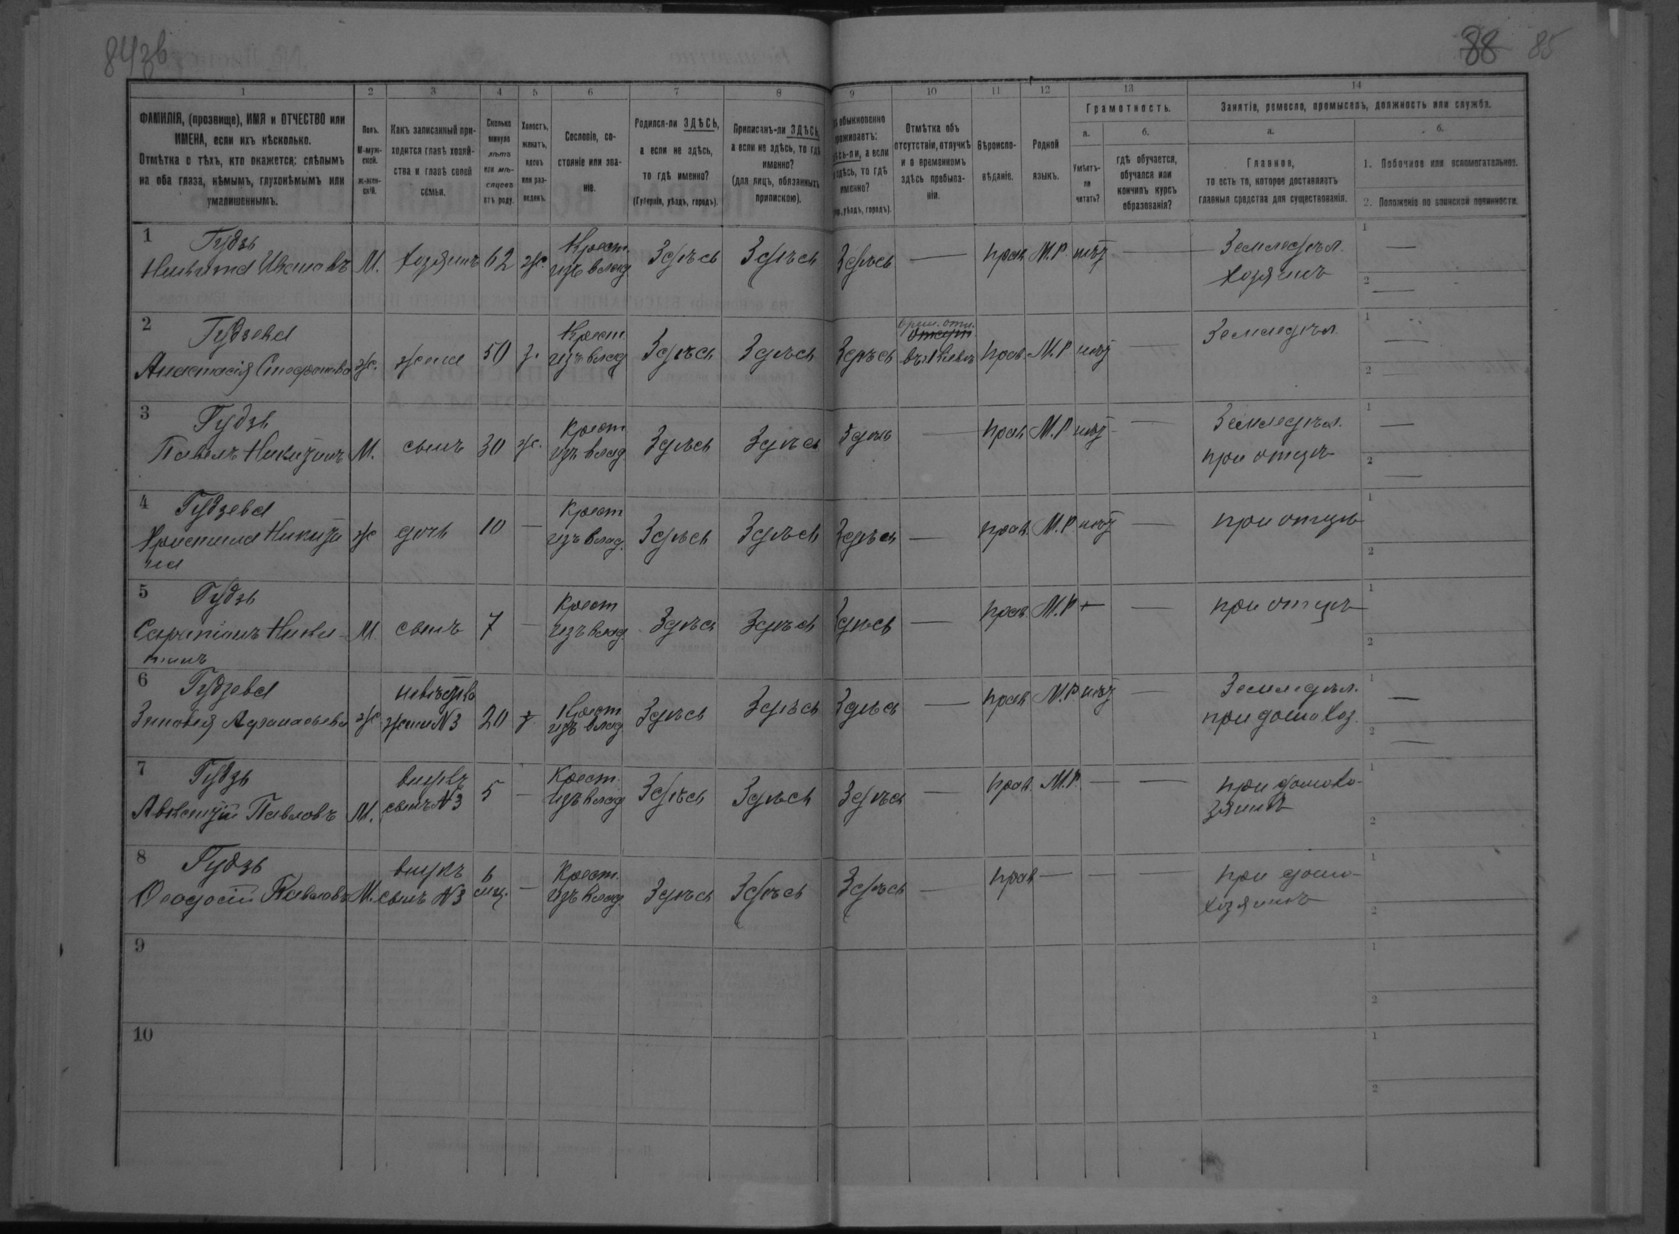 84зв
88 85
1 2 3 4 5 6 7 8 9 10 11 12 13 14
ФАМИЛІЯ, (прозвище), ИМЯ и ОТЧЕСТВО или
ИМЕНА, если ихъ нѣсколько.
Отмѣтка о тѣхъ, кто окажется: слѣпымъ
на оба глаза, нѣмымъ, глухонѣмымъ или
умалишеннымъ.
Полъ.
М-муж-
ской.
Какъ записанный при-
ходится главѣ хозяй-
ства и главѣ своей
семьи.
Сколько
минуло
лѣтъ
или мѣ-
сяцевъ
отъ роду.
Холостъ,
женатъ,
вдовъ
или раз-
веденъ.
Сословіе, со-
стояніе или зва-
ніе.
Родился-ли ЗДѢСЬ,
а если не здѣсь,
то гдѣ именно?
(Губернія, уѣздъ, городъ).
Приписанъ-ли ЗДѢСЬ,
а если не здѣсь, то гдѣ
именно?
(для лицъ, обязанныхъ
припискою).
обыкновенно
проживаетъ:
здѣсь-ли, а если
не здѣсь, то гдѣ
именно?
уѣздъ, городъ).
Отмѣтка объ
отсутствіи, отлучкѣ
и о временномъ
здѣсь пребыва-
ніи.
Вѣроиспо-
вѣданіе.
Родной
языкъ.
Грамотность.
а.
Умѣетъ-
ли
читать?
б.
гдѣ обучается,
обучался или
кончилъ курсъ
образованія?
Занятія, ремесло, промыселъ, должность или служба.
а.
Главное,
то есть то, которое доставляетъ
главныя средства для существованія.
б.
1. Побочное или вспомогательное.
2. Положеніе по воинской повинности.
1 Гудзь
Никита Ивановъ М. хозяинъ 62 ж. Крест. изъ влад. Здѣсь Здѣсь Здѣсь — прав. М.Р нѣтъ — Земледѣл. хозяинъ 1 — 2 —
2 Гудзева
Анастасія ж. жена 50 з. Крест. изъ влад. Здѣсь Здѣсь Здѣсь прав. М.Р нѣтъ — Земледѣл. 1 — 2 —
3 Гудзь
Павелъ Никитинъ М. сынъ 30 ж. Крест. изъ влад. Здѣсь Здѣсь Здѣсь — прав. М.Р нѣтъ — Земледѣл. при отцѣ 1 — 2 —
4 Гудзева
Христина Никити
на ж дочь 10 — Крест изъ влад. Здѣсь Здѣсь Здѣсь — прав. М.Р нѣтъ — при отцѣ 1 2
5 Гудзь
Серапіонъ Ники-
тинъ М сынъ 7 — Крест изъ влад. Здѣсь Здѣсь Здѣсь — прав. М.Р + — при отцѣ 1 2
6 Гудзева
Зиновія Афанасьева ж. невѣстка жена №3 20 з Крест изъ влад. Здѣсь Здѣсь Здѣсь — прав. М.Р нѣтъ — Земледѣл. при домохоз. 1 — 2 —
7 Гудзь
Авксентій Павловъ М. внукъ сынъ №3 5 — Крест. изъ влад. Здѣсь Здѣсь Здѣсь — прав. М.Р. — — при домохо-
зяинѣ 1 2
8 Гудзь
Ѳеодосій Павловъ М. внукъ сынъ №3 6 мц. — Крест. изъ влад. Здѣсь Здѣсь Здѣсь — прав — — — при домо-
хозяинѣ 1 2
9 1 2
10 1 2